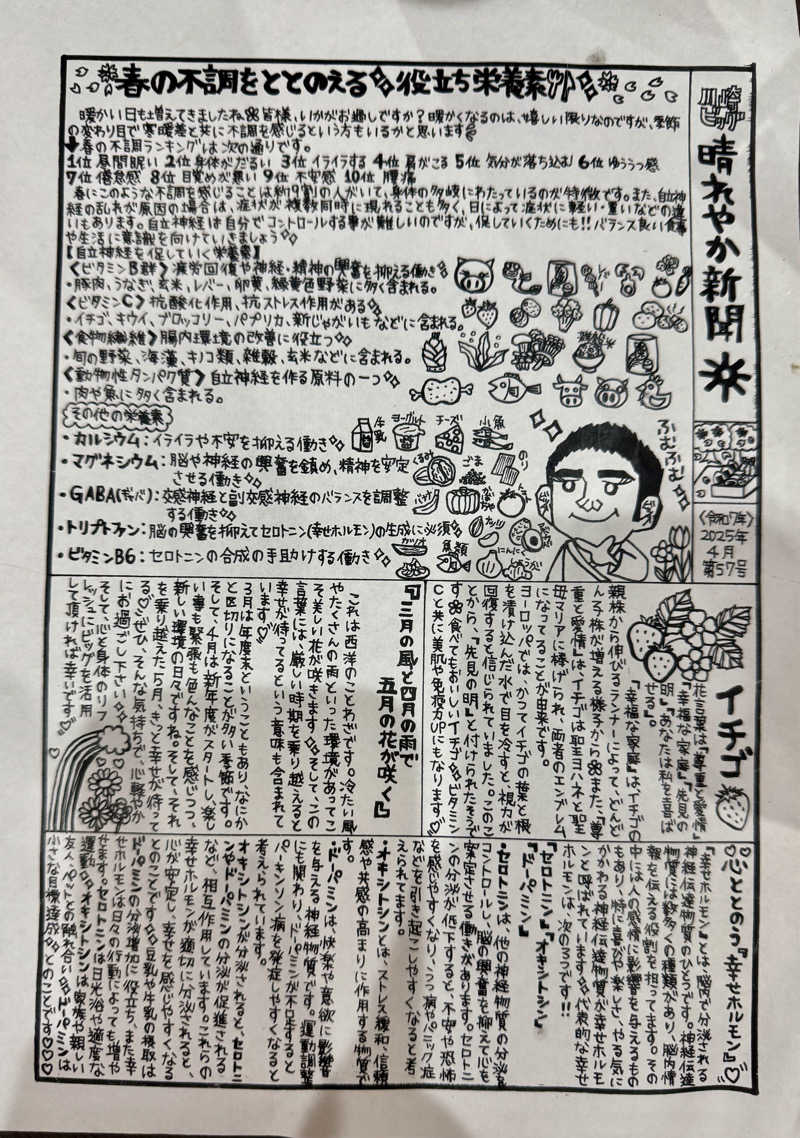 春の不調をととのえる役立ち栄養素
川崎ビッグ
晴れやか新聞
〈令和7年〉
2025年
4月
第57号
暖かい日も増えてきましたね 皆様、いかがお過しですか？暖かくなるのは、嬉しい限りなのですが、季節
の変わり目で寒暖差と共に不調を感じるという方もいるかと思います
↓春の不調ランキングは次の通りです。
1位 昼間眠い 2位 身体がだるい 3位 イライラする 4位 肩がこる 5位 気分が落ち込む 6位 ゆううつ感
7位 倦怠感 8位 目覚めが悪い 9位 不安感 10位 腰痛
春にこのような不調を感じることは約9割の人がいて、身体の多岐にわたっているのが特徴です。また、自立神
経の乱れが原因の場合は、症状が複数同時に現れることも多く、日によって症状に軽い・重いなどの違
いもあります。自立神経は自分でコントロールする事が難しいのですが、促していくためにも!!バランス良い食事
や生活に意識を向けていきましょう
【自立神経を促していく栄養素】
〈ビタミンB群〉疲労回復や神経・精神の興奮を抑える働き
・豚肉、うなぎ、玄米、レバー、卵黄、緑黄色野菜に多く含まれる。
〈ビタミンC〉抗酸化作用、抗ストレス作用がある
・イチゴ、キウイ、ブロッコリー、パプリカ、新じゃがいもなどに含まれる。
〈食物繊維〉腸内環境の改善に役立つ
・旬の野菜、海藻、キノコ類、雑穀、玄米などに含まれる。
〈動物性タンパク質〉自立神経を作る原料の一つ
・肉や魚に多く含まれる。
その他の栄養素
・カルシウム：イライラや不安を抑える働き
牛乳
ヨーグルト
チーズ
小魚
・マグネシウム：脳や神経の興奮を鎮め、精神を安定
させる働き
くるみ
ごま
のり
・GABA(ギャバ)：交感神経と副交感神経のバランスを調整
する働き
・トリプトファン：脳の興奮を抑えてセロトニン(幸せホルモン)の生成に必須
ナッツ
・ビタミンB6：セロトニンの合成の手助けする働き
カツオ
魚類
にんにく
ふむふむ
イチゴ
花言葉は『尊重と愛情』
『幸福な家庭』、『先見の
明』、『あなたは私を喜ば
せる』。
『幸福な家庭』は、イチゴの
親株から伸びるランナーによって、どんど
ん子株が増える様子から また、『尊
重と愛情』は、イチゴは聖ヨハネと聖
母マリアに捧げられ、両者のエンブレム
になってることが由来です。
ヨーロッパでは、かつてイチゴの葉と根
を漬け込んだ水で目を冷すと、視力が
回復すると信じられていました。このこ
とから、『先見の明』と付けられたそうで
す 食べてもおいしいイチゴ ビタミン
Cと共に美肌や免疫力UPにもなります♡
『三月の風と四月の雨で
五月の花が咲く』
これは西洋のことわざです。冷たい風
やたくさんの雨といった環境があってこ
そ美しい花が咲きます そして、この
言葉には、厳しい時期を乗り越えると
幸せが待ってるという意味も含まれて
います♡
3月は年度末ということもあり、なにか
と区切りになることが多い季節です。
そして、4月は新年度がスタートし、楽し
い事も緊張も色んなことを感じつつ、
新しい環境の日々ですね。そして、それ
を乗り越えた5月、きっと幸せが待って
る♡ぜひ、そんな気持ちで、心軽やか
にお過ごし下さい
そして、心と身体のリフ
レッシュにビッグを活用
して頂ければ幸いです♡
心ととのう『幸せホルモン』♡
『幸せホルモン』とは、脳内で分泌される
神経伝達物質のひとつです。神経伝達
物質には数多くの種類があり、脳内情
報を伝える役割を担ってます。その
中には人の感情に影響を与えるもの
もあり、特に喜びや楽しさ、やる気に
かかわる神経伝達物質が幸せホルモ
ンと呼ばれています 代表的な幸せ
ホルモンは、次の3つです!!
『セロトニン』『オキシトシン』
『ドーパミン』
・セロトニンは、他の神経物質の分泌を
コントロールし、脳の興奮を抑えて心を
安定させる働きがあります。セロトニ
ンの分泌が低下すると、不安や恐怖
を感じやすくなり、うつ病やパニック症
などを引き起こしやすくなると考
えられてます。
・オキシトシンとは、ストレス緩和、信頼
感や共感の高まりに作用する物質で
す。
・ドーパミンは、快楽や意欲に影響
を与える神経物質です。運動調整
にも関わり、ドーパミンが不足すると
パーキンソン病を発症しやすくなると
考えられています。
オキシトシンが分泌されると、セロトニ
ンやドーパミンの分泌が促進される
など、相互作用しています。これらの
幸せホルモンが適切に分泌されると、
心が安定し、幸せを感じやすくなる
とのことです 豆乳や牛乳の摂取は
ドーパミンの分泌増加に役立ち、また幸
せホルモンは日々の行動によっても増や
せます。セロトニンは日光浴や適度な
運動 オキシトシンは家族や親しい
友人、ペットとの触れ合い ドーパミンは
小さな目標達成 とのことです♡♡♡